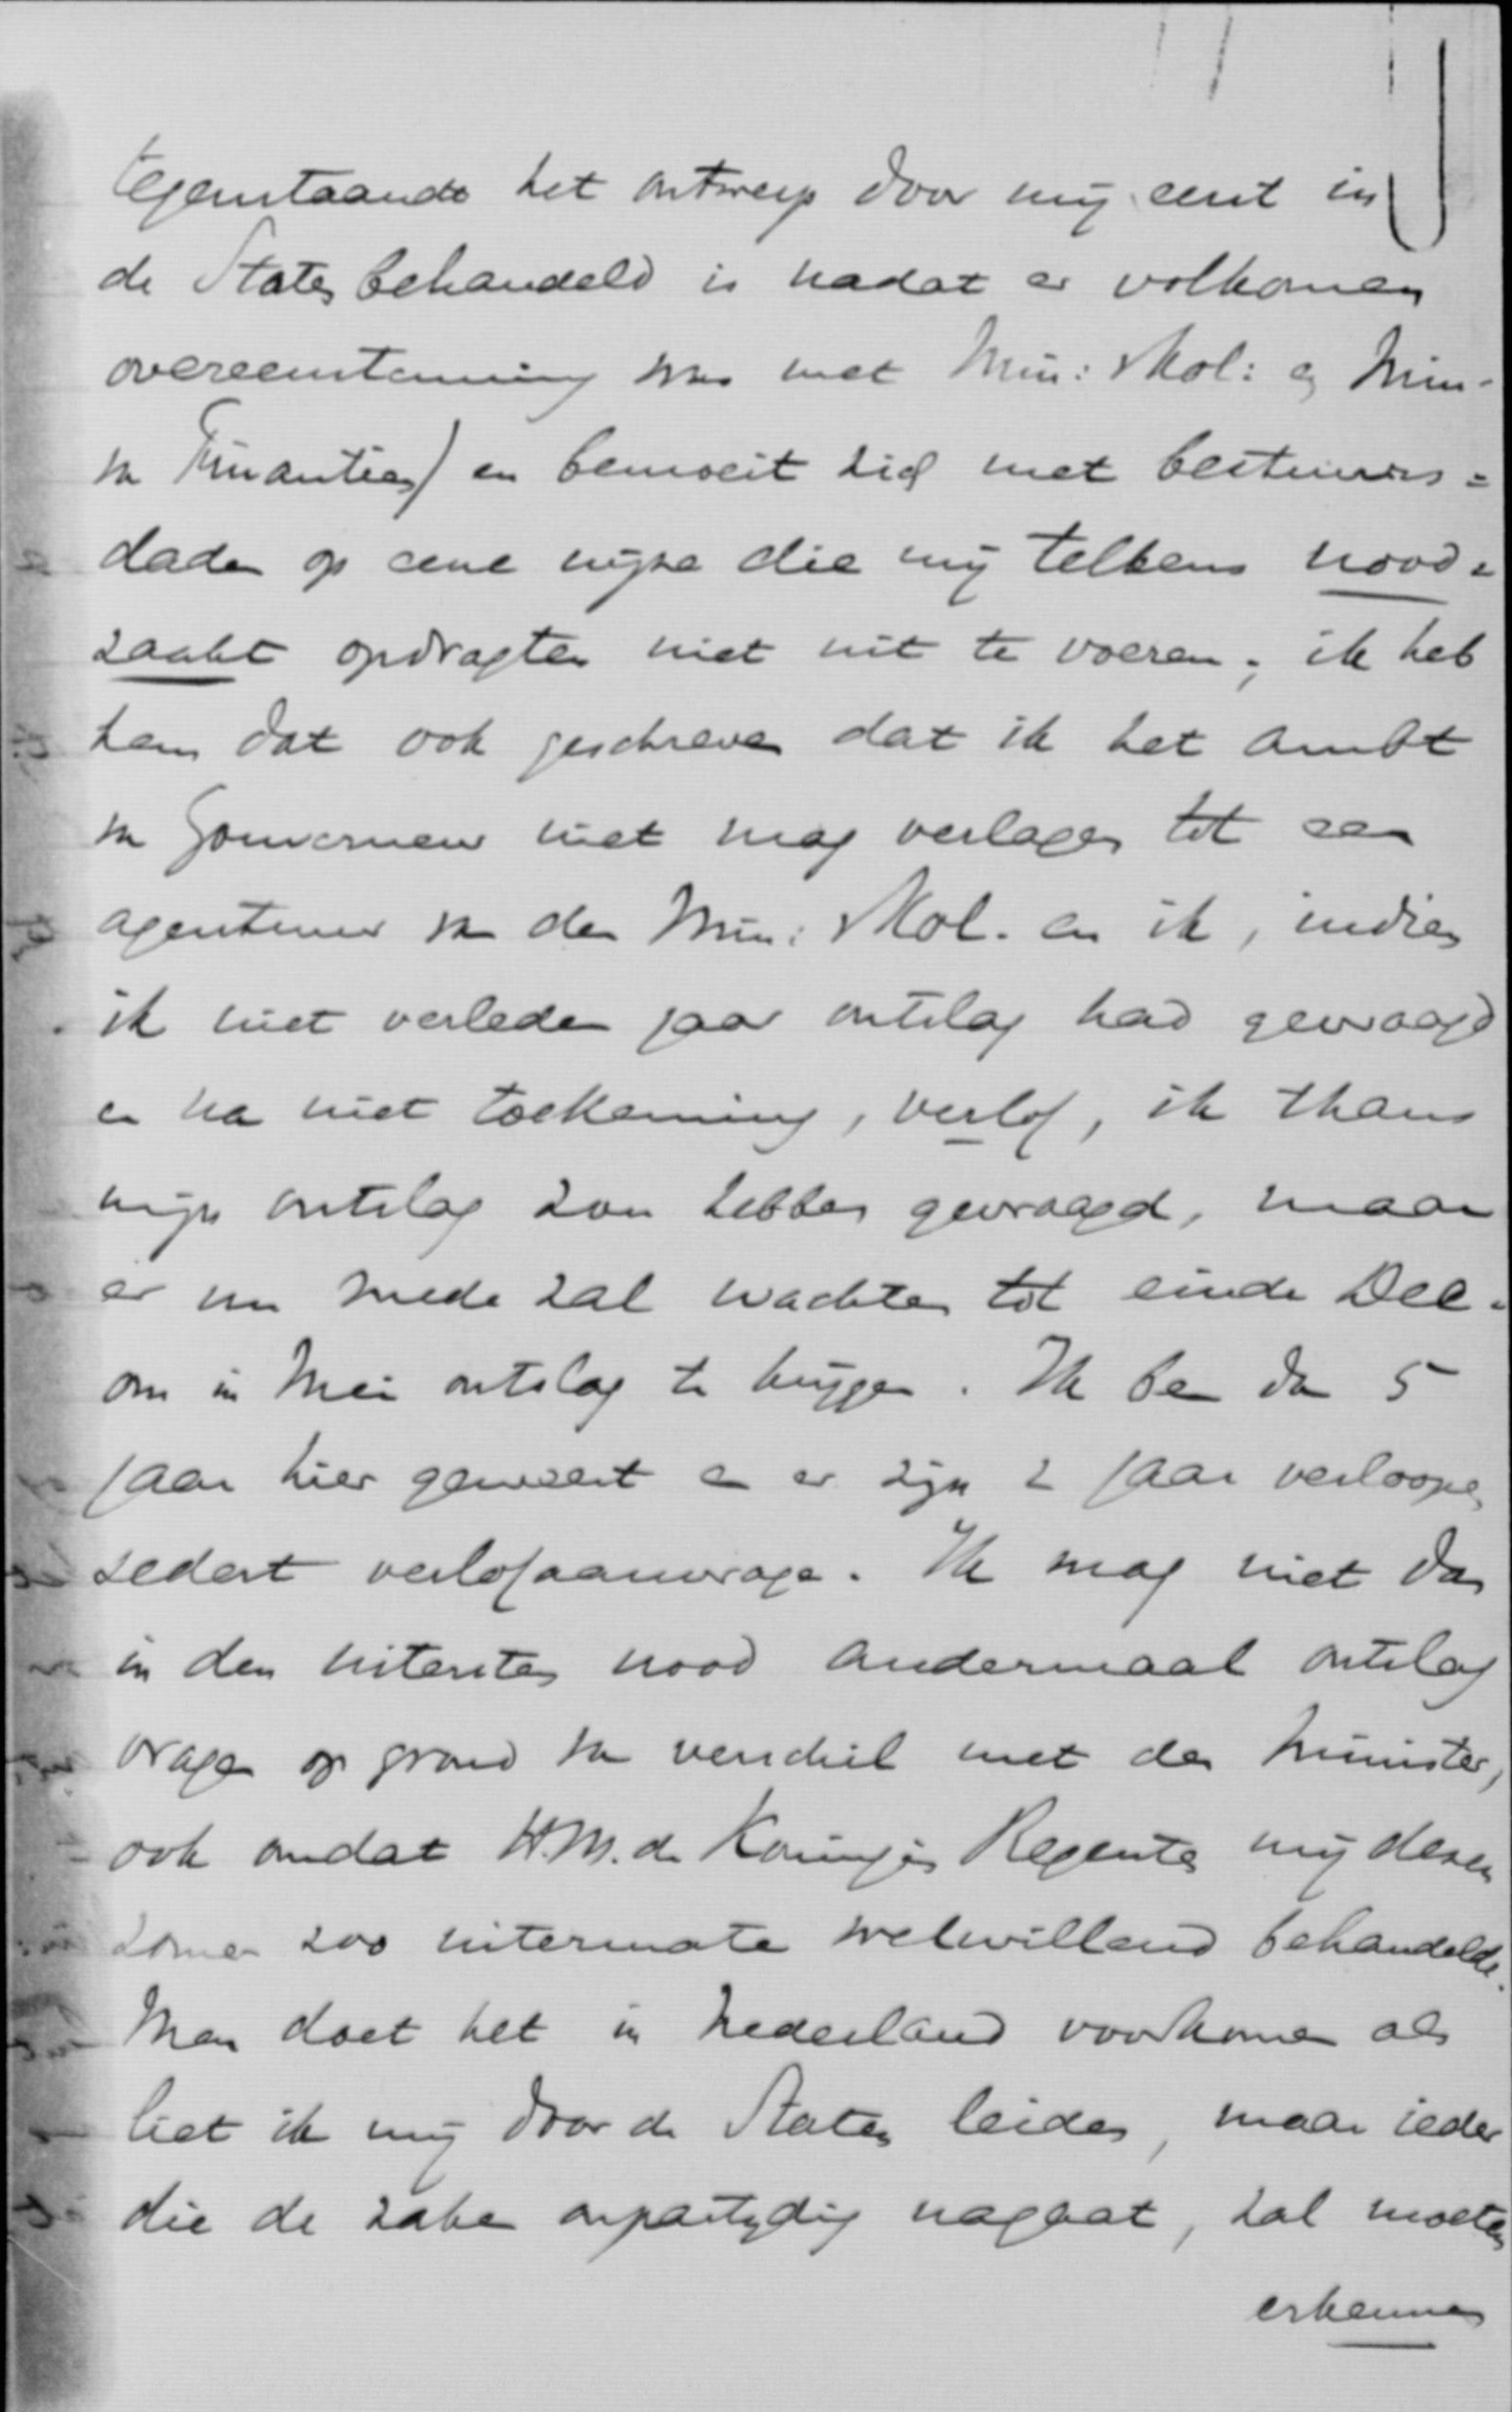 tegenstaande het ontwerp door mij eerst in
de Staten behandeld is nadat er volkomen
overeenstemming was met Min: v Kol: en Min-
van Financiën) en bemoeit zich met bestuurs=
daden op eene wijze die mij telkens nood=
zaakt opdragten niet uit te voeren; ik heb
hem dat ook geschreven dat ik het ambt
van Gouverneur niet mag verlagen tot een
agentuur van den Min: v Kol. en ik, indien
ik niet verleden jaar ontslag had gevraagd
en na niet toekenning, verlof, ik thans
mijn ontslag zou hebben gevraagd, maar
er nu mede zal wachten tot einde Dec.
om in Mei ontslag te krijgen. Ik ben dan 5
jaar hier geweest en er zijn 2 jaar verloopen
sedert verlofaanvrage. Ik mag niet dan
in den uitersten nood andermaal ontslag
vragen op grond van verschil met den Minister,
ook omdat H.M. de Koningin Regentes mij dezen
zomer zoo uitermate welwillend behandelde.
Men doet het in Nederland voorkomen als
liet ik mij door de Staten leiden, maar ieder
die de zake onpartijdig nagaat, zal moeten
erkennen